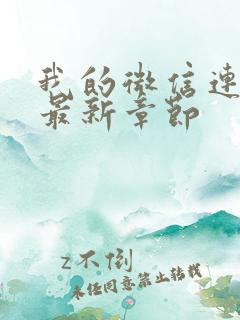 我的微信连
最新章节
z不倒
未经同意禁止转载